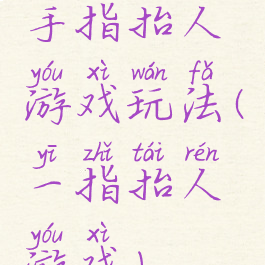 手指抬人
yóu xì wán fǎ
游戏玩法(
yī zhǐ tái rén
一指抬人
yóu xì
游戏)